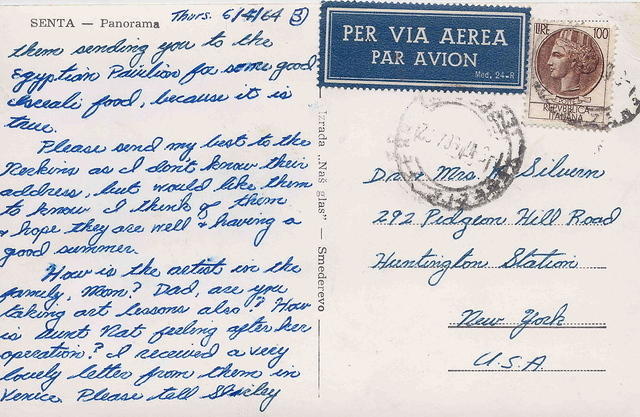 SENTA — Panorama
Thurs. 6/4/64 3
them sending you to the
Egyptian Pavilion for some good
Isreali food, because it is
true.
Please send my best to the
Perkins as I don't know their
address, but would like them
to know I think of them
+ hope they are well + having a
good summer.
How is the artist in the
family, Mom? Dad, are you
taking art lessons also? How
is Aunt Nat feeling after her
operation? I received a very
lovely letter from them in
Venice. Please tell Shirley
Izrada „Naš glas” — Smederevo
PER VIA AEREA
PAR AVION
Mod. 24-R
LIRE 100
REPVBBLICA
ITALIANA
Mrs. Silvern
292 Pidgeon Hill Road
Huntington Station
New York
U.S.A.